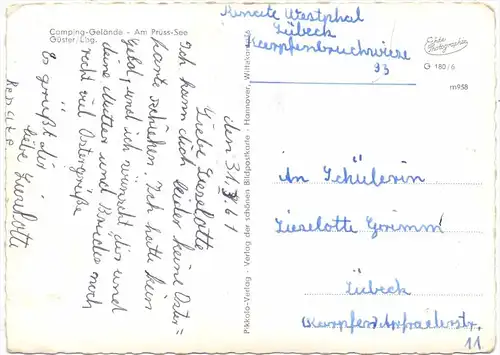 Camping-Gelände - Am Prüss-See
Güster/Lbg.
den 31.3.61
Liebe Lieselotte
Ich kann dich leider keine Oster=
karte schicken. Ich hatte kein
Geld, und ich wünscht dir und
deine Mutter und Brüder noch
recht viel Ostergrüße
Es grüßt dir
liebe Lieselotte
Renate
Pikkolo-Verlag - Verlag der schönen Bildpostkarte - Hannover, Wittekindstr.
Renate Westphal
Lübeck
Karpfenbruchwiese
93
Echte Photographie
G 180/6
m958
An Schülerin
Lieselotte Grimm
Lübeck
11